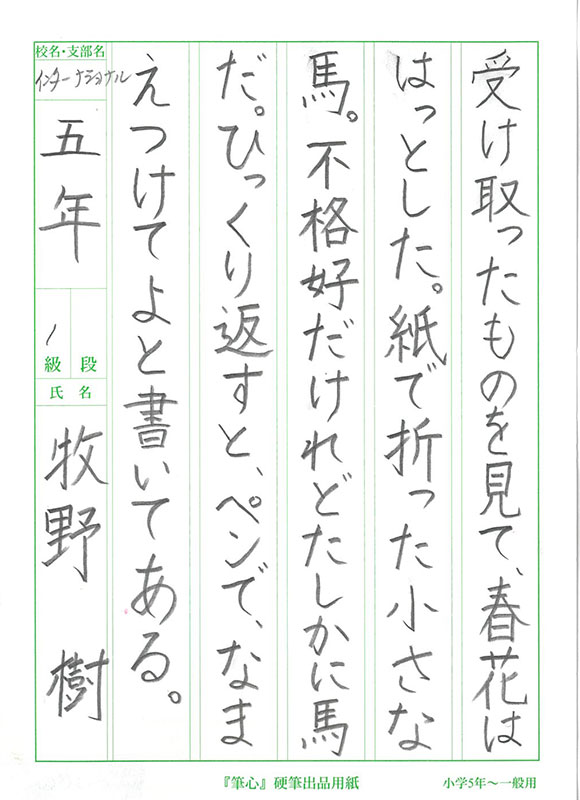 受け取ったものを見て、春花は
はっとした。紙で折った小さな
馬。不格好だけれどたしかに馬
だ。ひっくり返すと、ペンで、なま
えつけてよと書いてある。
校名・支部名
インターナショナル
五年
1
級 段
氏名
牧野 樹
『筆心』硬筆出品用紙
小学5年～一般用